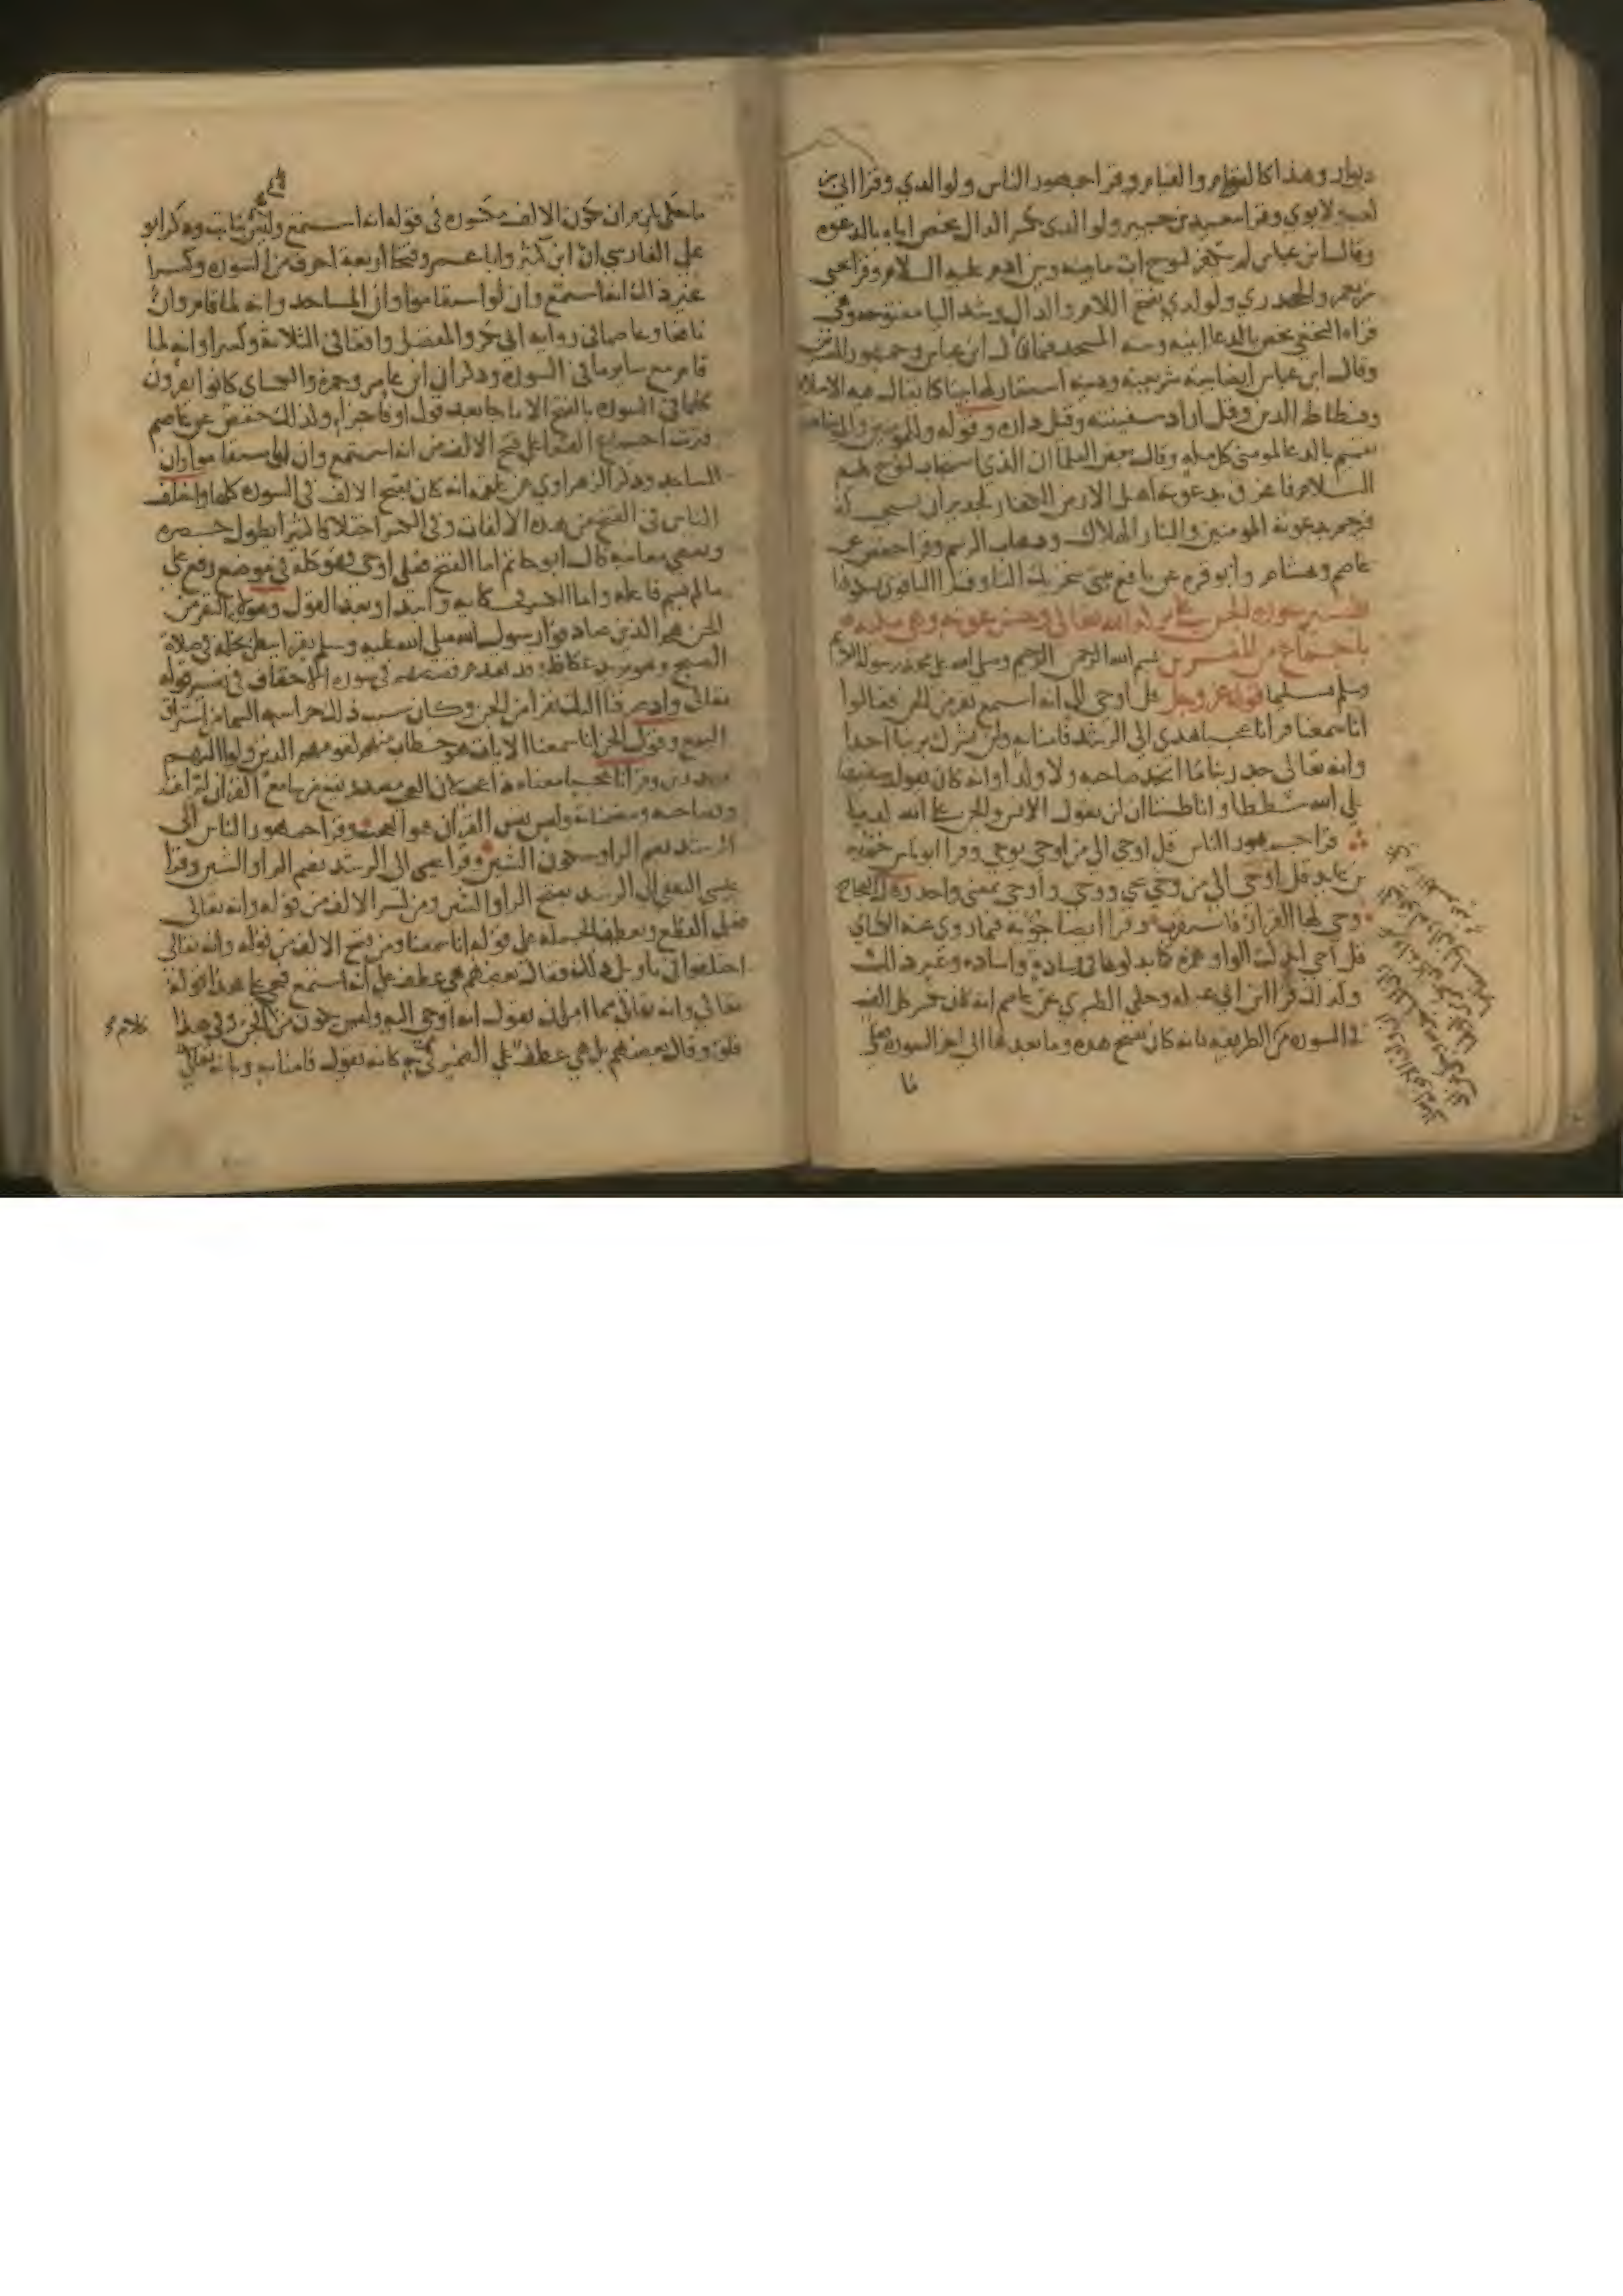 ديار وهذا كالقوام والقيام وقرا جمهور الناس ولوالدي وقرا ابي بن
كعب ولابوي وقرا سعيد بن جبير ولوالدي بكسر الدال يخص اباه بالدعوه
وقال ابن عباس لم يكفر لنوح اب ما بينه وبين ادم عليه السلام وقرا يحيى
بن يعمر والجحدري ولولدي بفتح اللام والدال وشد اليا مفتوحة وهي
قراه النخعي يخص بالدعا ابنيه وبيته المسجد فيما قال ابن عباس وجمهور المفسرين
وقال ابن عباس ايضا بيته شريعته ودينه استعار لها بيتا كما يقال قبه الاسلام
وفسطاط الدين وقيل اراد سفينته وقيل داره وقوله وللمومنين والمومنات
تعميم بالدعا لمومني كل مله وقال بعض العلما ان الذي استجاب لنوح عليه
السلام فاغرق بدعوته اهل الارض الكفار لجدير ان يستجيب له
فيرحم بدعوته المومنين والتبار الهلاك وذهاب الرسم وقرا حفص عن
عاصم وهشام وابو قره عن نافع بيتي بتحريك اليا وقرا الباقون بسكونها
تفسير سورة الجن على بركه الله تعالى وحسن عونه وهي مكيه
باجماع من المفسرين بسم الله الرحمن الرحيم وصلى الله على محمد رسوله الكريم
وسلم تسليما قوله عز وجل قل اوحي الي انه استمع نفر من الجن فقالوا
انا سمعنا قرانا عجبا يهدي الى الرشد فامنا به ولن نشرك بربنا احدا
وانه تعالى جد ربنا ما اتخذ صاحبه ولا ولدا وانه كان يقول سفيهنا
على الله شططا وانا ظننا ان لن تقول الانس والجن على الله كذبا
قرا جمهور الناس قل اوحي الي من اوحى يوحي وقرا ابو اناس جويه
بن عايذ قل اوحي الي من وحي يحي ووحي واوحي بمعنى واحد وقال العجاج
وحى لها القرار فاستقرت وقرا ايضا جويه فيما روى عنه الكساي
قل احي ابدلت الواو همزه كما ابدلوها في وساده واساده وغير ذلك
وكذلك قرا ابن ابي عبله وحكى الطبري عن عاصم انه كان يكسر كل الف
في السوره من الطريقه بانه كان يفتح هذه وما بعدها الى اخر السوره فعلى
ما
ما حكى يلزم ان تكون الالف مكسوره في قوله انه استمع وليس بثابت وذكر ابو
علي الفارسي ان ابن كثير وابا عمرو فتحا اربعه احرف من السوره وكسرا
غير ذلك انه استمع وان لو استقاموا وان المساجد وانه لما قام وان
نافعا وعاصما في روايه ابي بكر والمفضل وافقا في الثلاثه وكسرا وانه لما
قام مع ساير ما في السوره وذكر ان ابن عامر وحمزه والكساي كانوا يقرون
كلما في السوره بالفتح الا ما جا بعد قول او فا جزا وكذلك حفص عن عاصم
فترتب اجماع القرا على فتح الالف من انه استمع وان لو استقاموا وان
المساجد وذكر الزهراوي عن علقمه انه كان يفتح الالف في السوره كلها واختلف
الناس في الفتح من هذه الالفات وفي الكسر اختلافا كثيرا يطول حصره
وتقصي معانيه قال ابو حاتم اما الفتح فعلى اوحي فهو كله في موضع رفع على
ما لم يسم فاعله واما الكسر فحكايه وابتدا وبعد القول وهولا النفر من
الجن هم الذين صادفوا رسول الله صلى الله عليه وسلم يقرا ببطن نخله في صلاة
الصبح وهو يريد عكاظ وقد تقدم قصصهم في سوره الاحقاف في تفسير قوله
تعالى واذ صرفنا اليك نفرا من الجن وكان سبب ذلك حراسه السما من استراق
السمع وقول الجن انا سمعنا الايات هو خطاب منهم لقومهم الذين ولوا اليهم
منذرين وقرانا عجبا معناه ذا عجب لان العجب مصدر يقع من سامع القران لبراعته
وفصاحته ومضمناته وليس نفس القران هو العجب وقرا جمهور الناس الى
الرشد بضم الرا وسكون الشين وقرا عيسى الى الرشد بضم الرا والشين وقرا
عيسى الثقفي الى الرشد بفتح الرا والشين ومن كسر الالف من قوله وانه تعالى
فعلى القطع ويعطف الجمله على قوله انا سمعنا ومن فتح الالف من قوله وانه تعالى
اختلفوا في تاويل ذلك فقال بعضهم هي عطف على انه استمع فيجي على هذا قوله
تعالى وانه تعالى مما امر ان يقول انه اوحي اليه وليس يكون من كلام الجن وفي هذا
قلق وقال بعضهم بل هي عطف على الضمير في به كانه يقول فامنا به وبانه تعالى